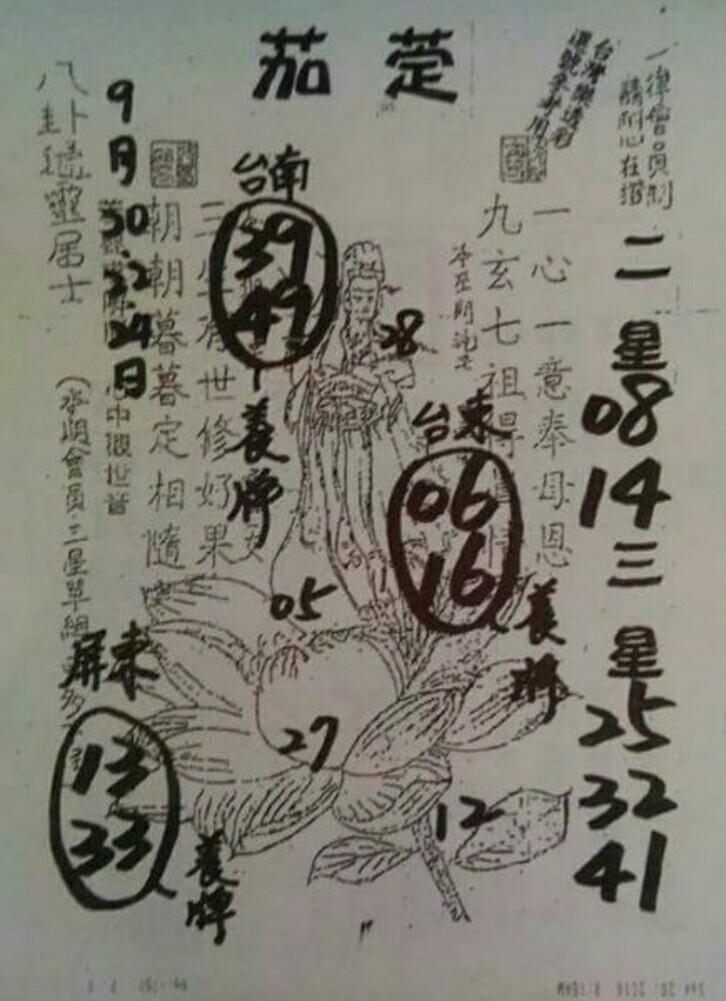 茄萣
台灣樂透彩
選號參考用
一律會員制
請耐心在撥
二星
08
14
三星
25
32
41
一心一意奉母恩
九玄七祖得
台南
39
49
養牌
28
台東
06
16
養牌
三生有世修好果
朝朝暮暮定相隨
05
27
12
9月30.22.24日
心中觀世音
八卦
靈居士
會員三星單組
屏東
13
33
養牌